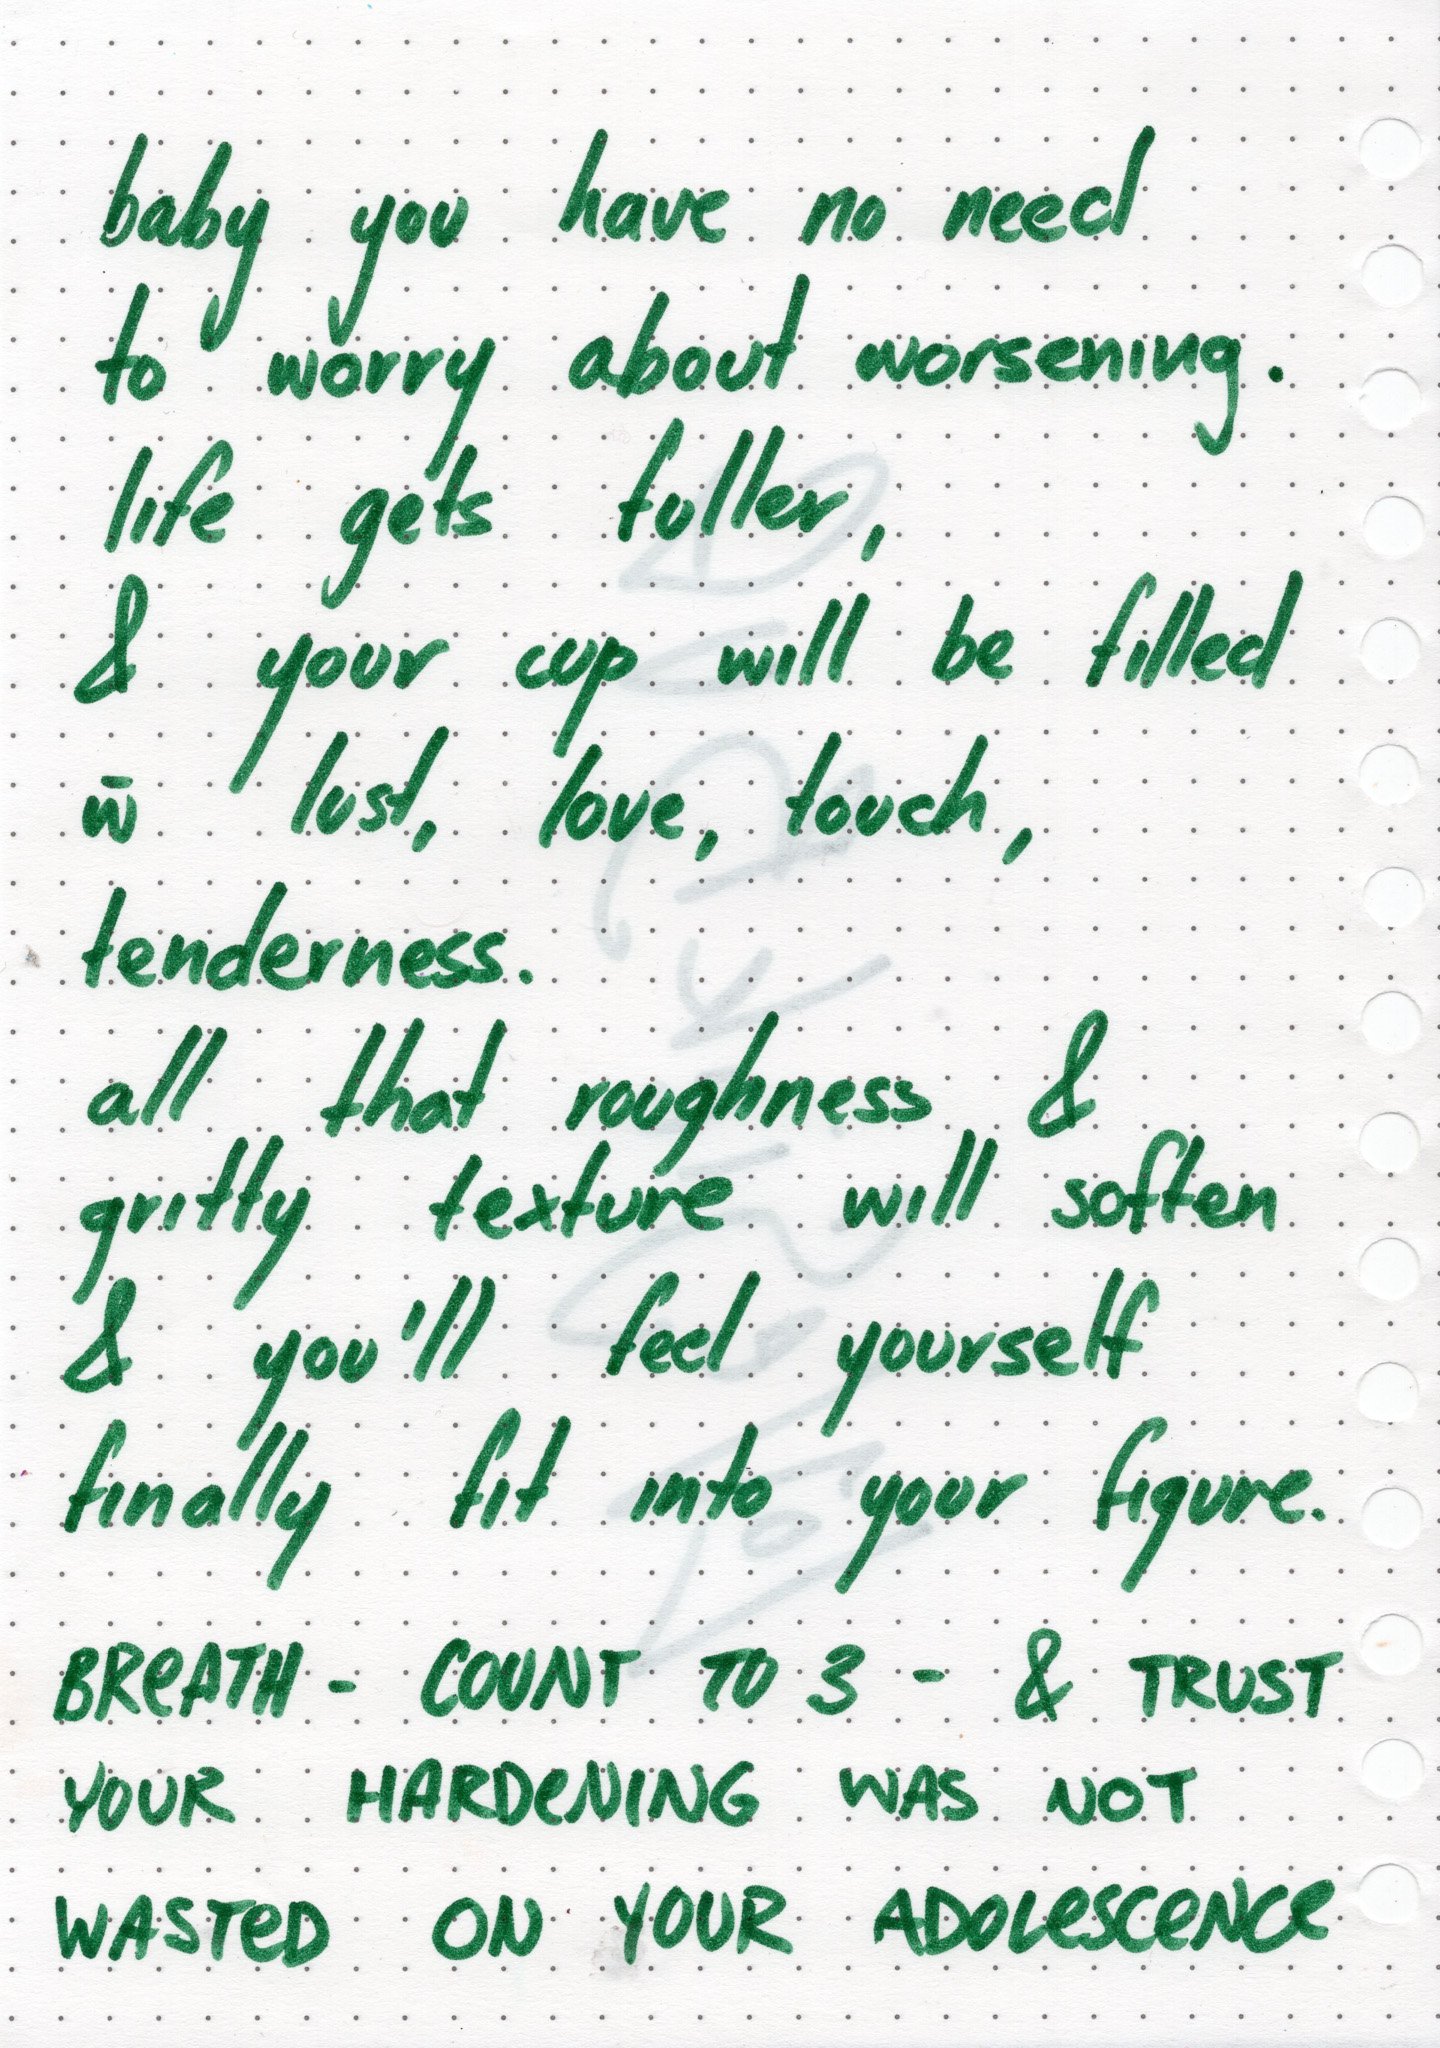 baby you have no need
to worry about worsening.
life gets fuller,
& your cup will be filled
w̄ lust, love, touch,
tenderness.
all that roughness &
gritty texture will soften
& you'll feel yourself
finally fit into your figure.
BREATH - COUNT TO 3 - & TRUST
YOUR HARDENING WAS NOT
WASTED ON YOUR ADOLESCENCE